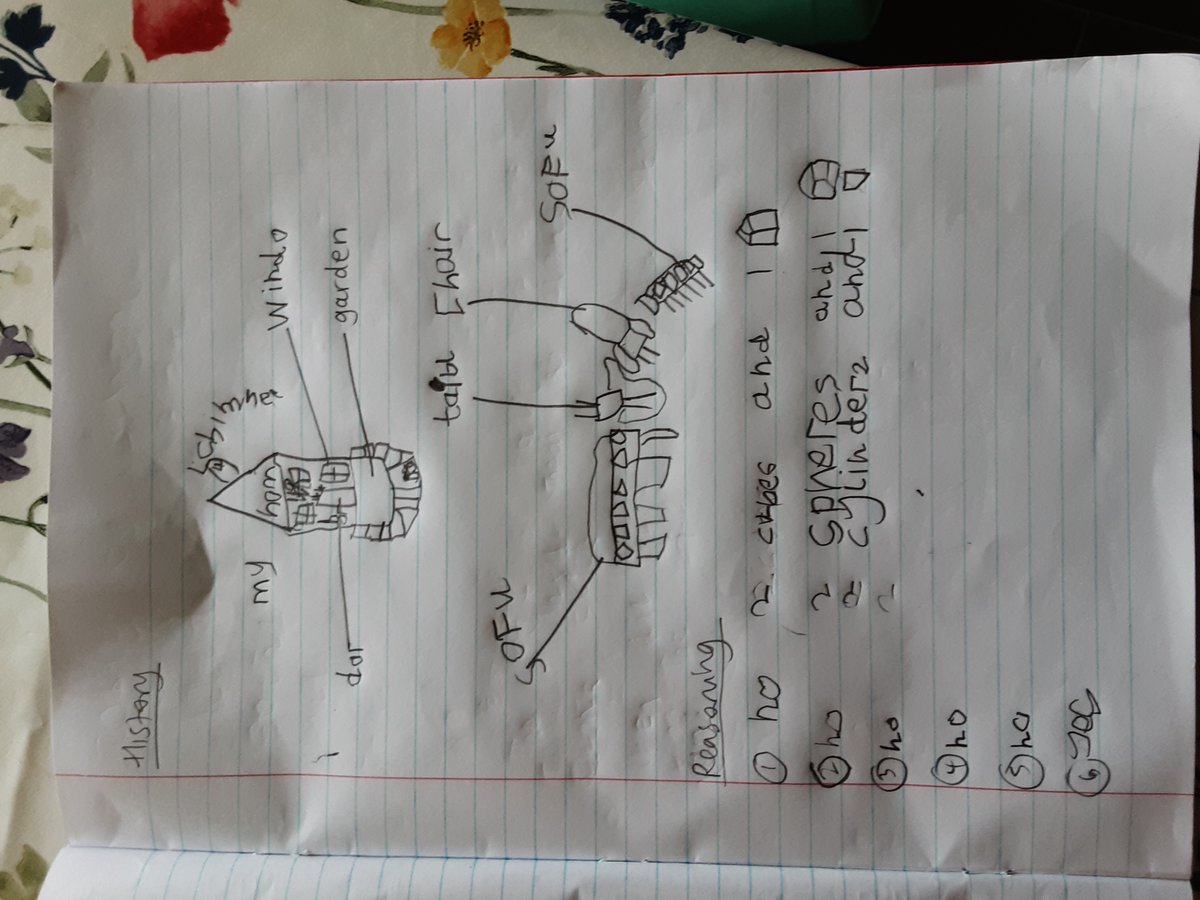 History
my
hom
Windo
garden
dor
taibl
Chair
SOFU
SOFU
Reasaning
① no 2 cubes and 1
② no 2 spheres and 1
③ no 2 cylinders and 1
④ no
⑤ no
⑥ yes